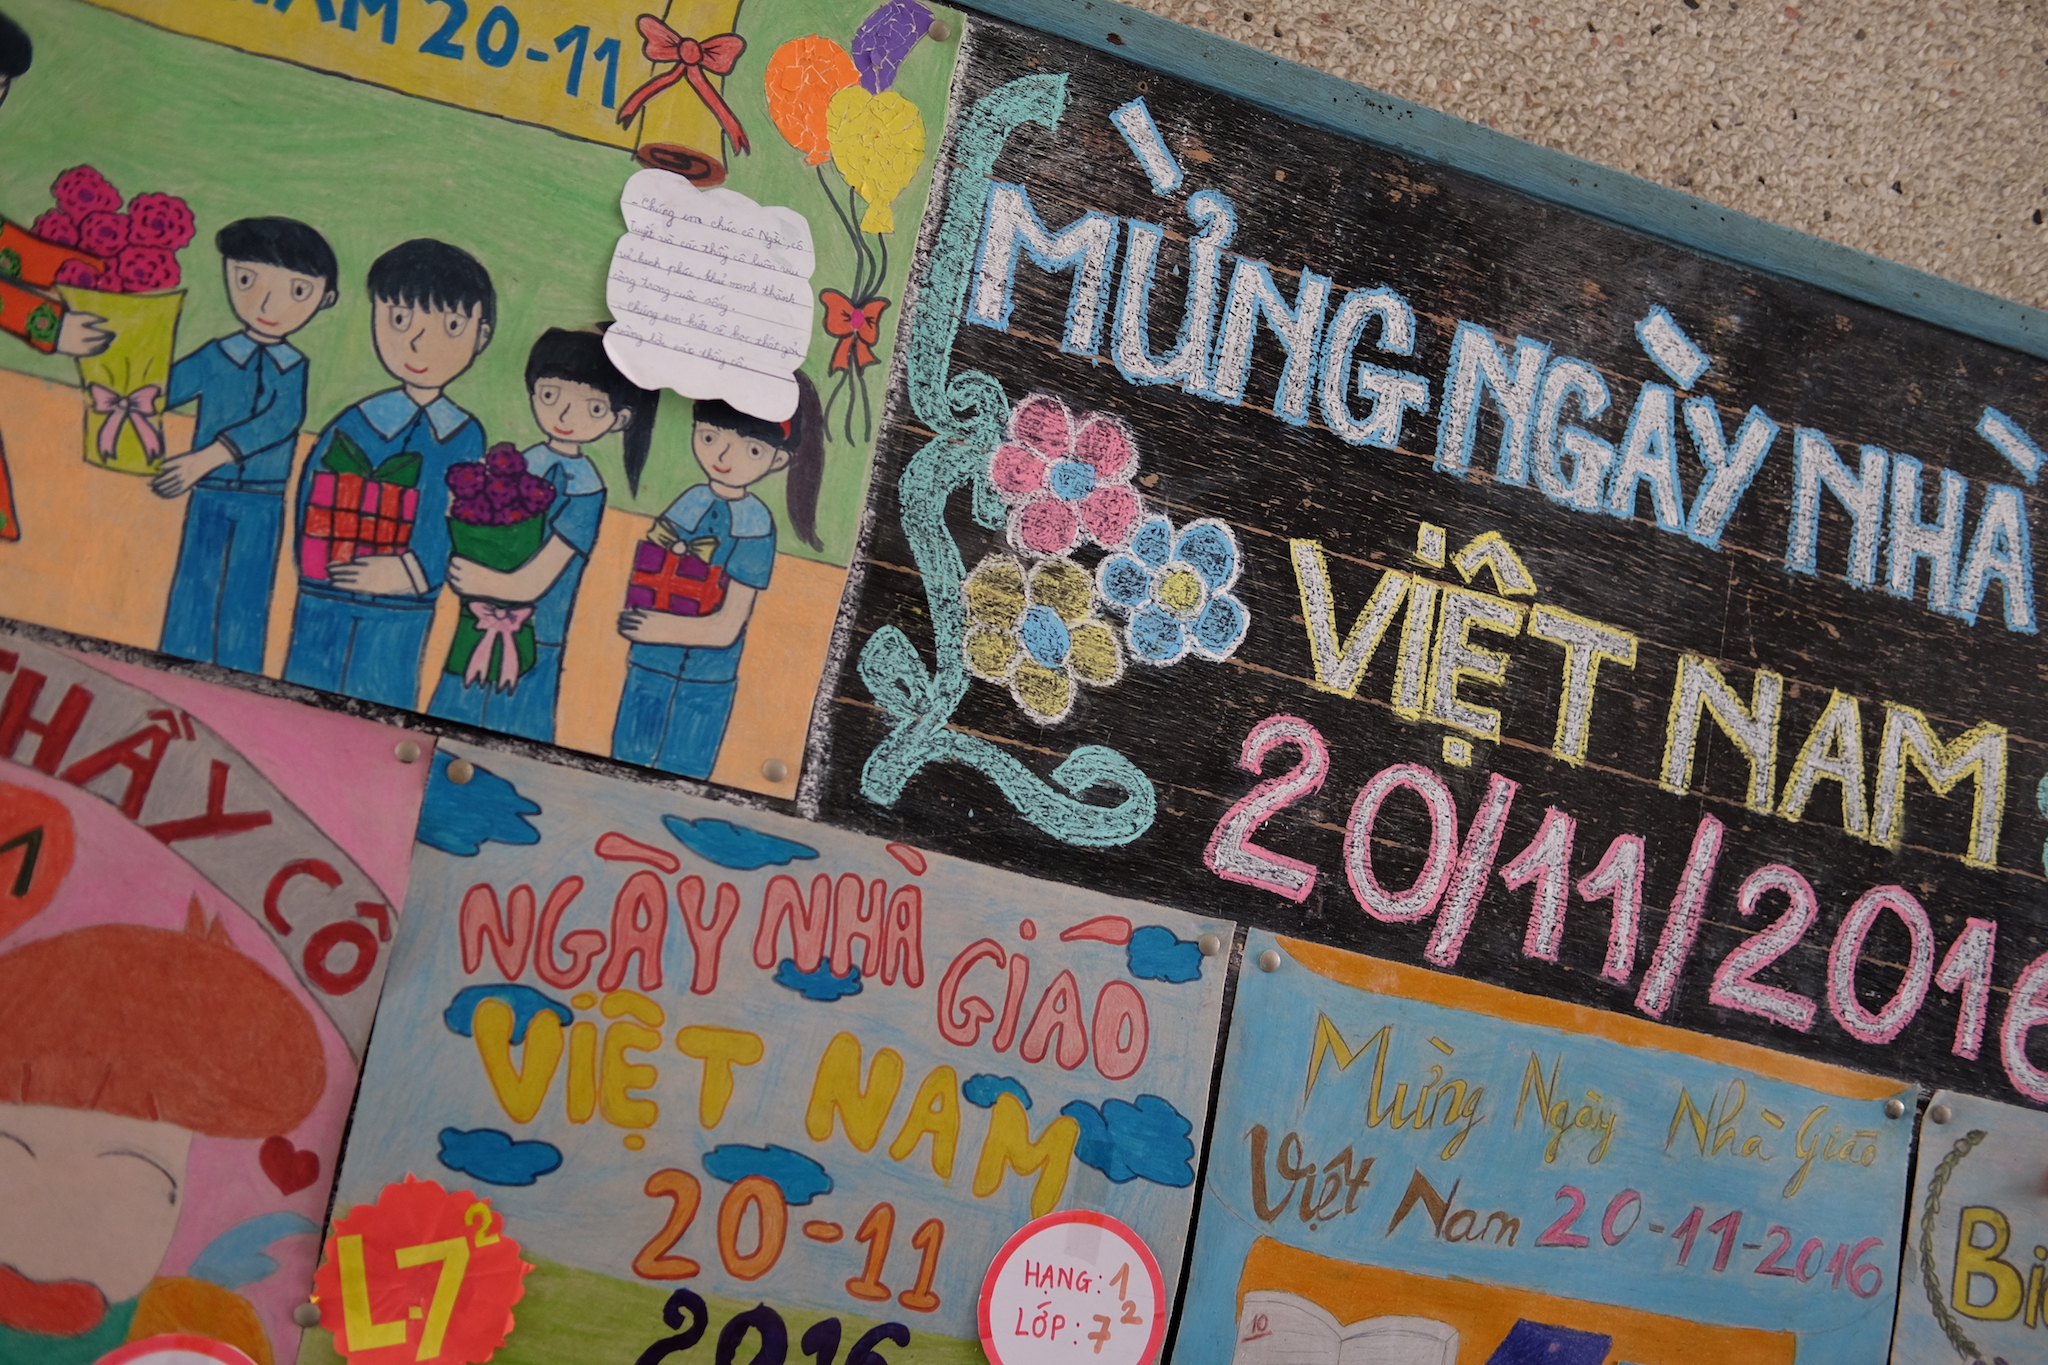 NAM 20-11
- Chúng em chúc cô Ngà, cô
Tuyết và các thầy cô luôn vui
vẻ, hạnh phúc, thành
công trong cuộc sống.
Chúng em học thật giỏi
các thầy cô.
MỪNG NGÀY NHÀ
VIỆT NAM
20/11/2016
THẦY CÔ
NGÀY NHÀ GIÁO
VIỆT NAM
20-11
2016
L.7²
HẠNG: 1
LỚP: 7²
Mừng Ngày Nhà Giáo
Việt Nam 20-11-2016
10